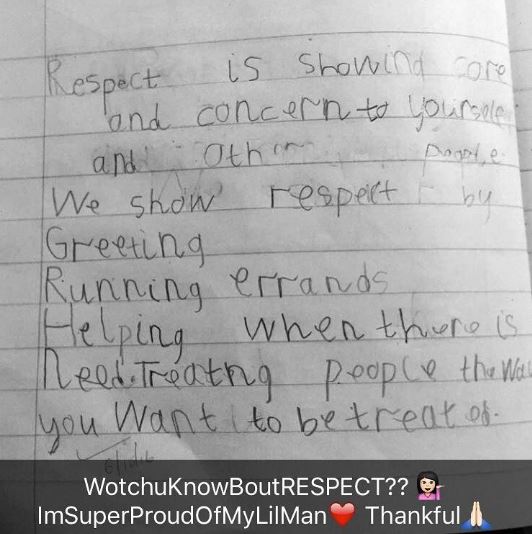 Respect is showing core
and concern to yourself
and other people.
We show respect by
Greeting
Running errands
Helping when there is
Need. Treatng people the way
you want to be treat ed.
WotchuKnowBoutRESPECT?? 💁🏻
ImSuperProudOfMyLilMan❤️ Thankful🙏🏻